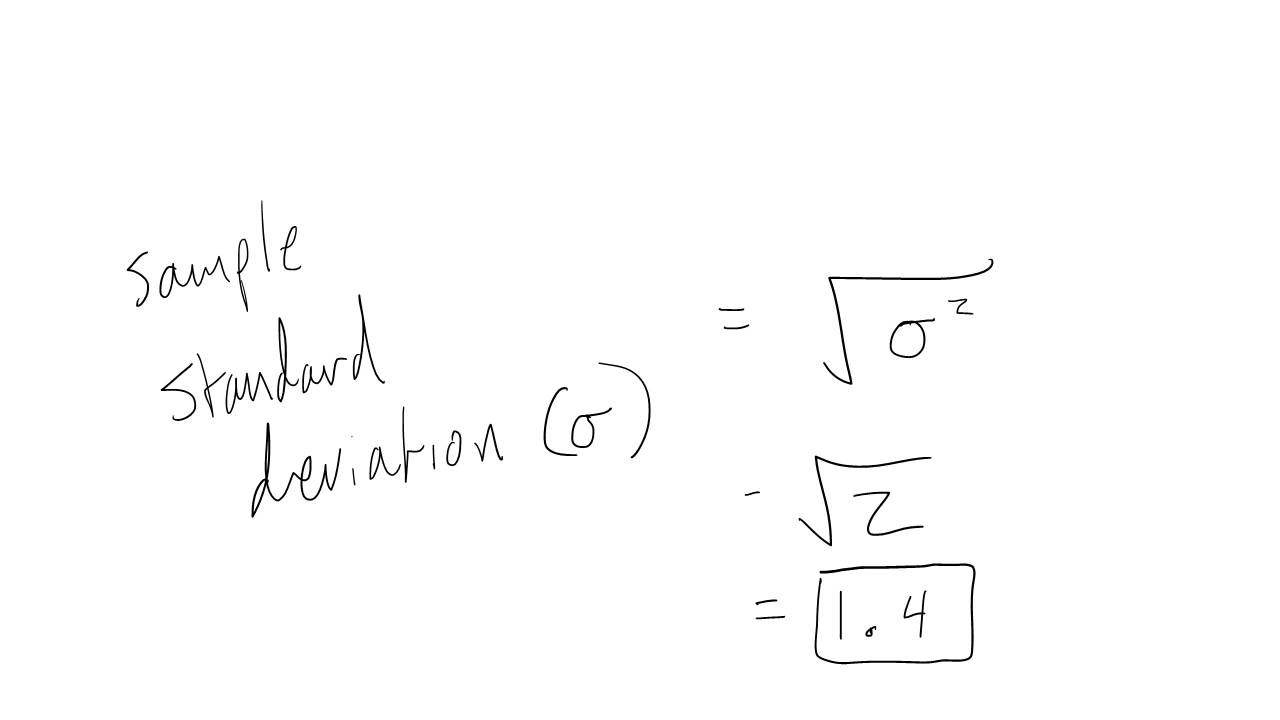 sample
standard
deviation (σ)
= √σ²
- √2
= 1.4